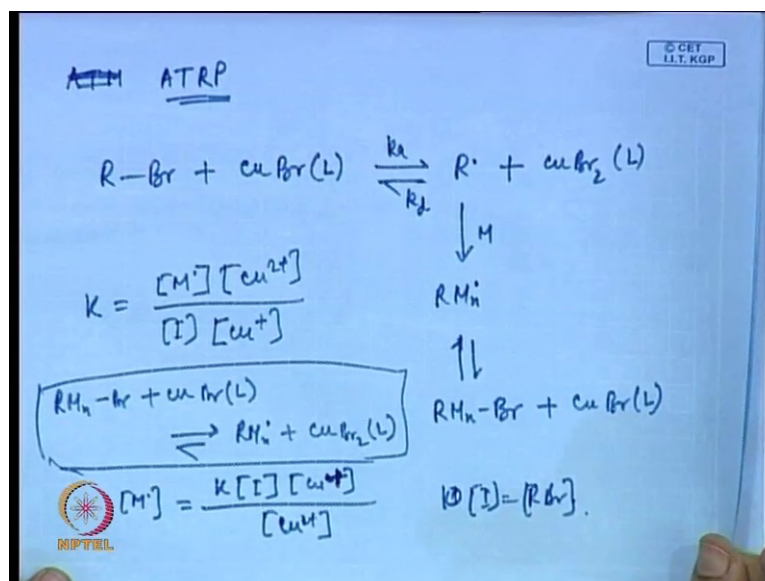 © CET
I.I.T. KGP
ATM ATRP
R–Br + CuBr(L) ⇌ R• + CuBr₂(L)
ka
kd
↓ M
K = [M•][Cu²⁺] / [I][Cu⁺]
RMn•
⇅
RMn–Br + CuBr(L)
RMn–Br + CuBr(L)
⇌ RMn• + CuBr₂(L)
[M•] = K[I][Cu⁺] / [Cu²⁺]
[I] = [RBr].
NPTEL